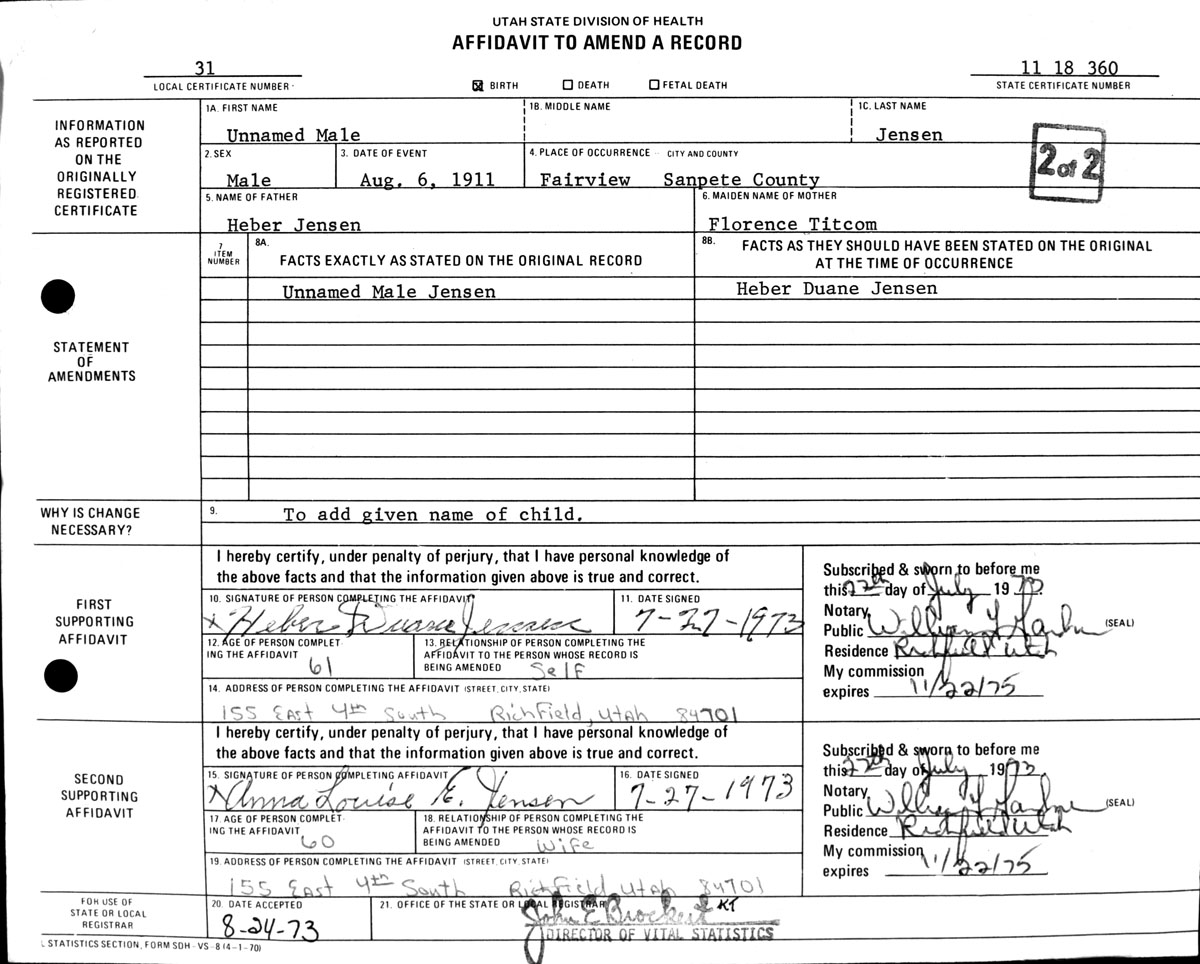 UTAH STATE DIVISION OF HEALTH
AFFIDAVIT TO AMEND A RECORD
31
LOCAL CERTIFICATE NUMBER
☒ BIRTH ☐ DEATH ☐ FETAL DEATH
11 18 360
STATE CERTIFICATE NUMBER
INFORMATION
AS REPORTED
ON THE
ORIGINALLY
REGISTERED
CERTIFICATE
1A. FIRST NAME
Unnamed Male
1B. MIDDLE NAME
1C. LAST NAME
Jensen
2. SEX
Male
3. DATE OF EVENT
Aug. 6, 1911
4. PLACE OF OCCURRENCE CITY AND COUNTY
Fairview Sanpete County
2 of 2
5. NAME OF FATHER
Heber Jensen
6. MAIDEN NAME OF MOTHER
Florence Titcom
STATEMENT
OF
AMENDMENTS
7
ITEM
NUMBER
8A.
FACTS EXACTLY AS STATED ON THE ORIGINAL RECORD
8B. FACTS AS THEY SHOULD HAVE BEEN STATED ON THE ORIGINAL
AT THE TIME OF OCCURRENCE
Unnamed Male Jensen
Heber Duane Jensen
WHY IS CHANGE
NECESSARY?
9. To add given name of child.
FIRST
SUPPORTING
AFFIDAVIT
I hereby certify, under penalty of perjury, that I have personal knowledge of
the above facts and that the information given above is true and correct.
10. SIGNATURE OF PERSON COMPLETING THE AFFIDAVIT
x Heber Duane Jensen
11. DATE SIGNED
7-27-1973
12. AGE OF PERSON COMPLET-
ING THE AFFIDAVIT
61
13. RELATIONSHIP OF PERSON COMPLETING THE
AFFIDAVIT TO THE PERSON WHOSE RECORD IS
BEING AMENDED Self
14. ADDRESS OF PERSON COMPLETING THE AFFIDAVIT (STREET, CITY, STATE)
155 East 4th South Richfield, Utah 84701
Subscribed & sworn to before me
this 27th day of July 1973
Notary
Public William (SEAL)
Residence Richfield Utah
My commission
expires 11/22/75
SECOND
SUPPORTING
AFFIDAVIT
I hereby certify, under penalty of perjury, that I have personal knowledge of
the above facts and that the information given above is true and correct.
15. SIGNATURE OF PERSON COMPLETING AFFIDAVIT
x Anna Louise E. Jensen
16. DATE SIGNED
7-27-1973
17. AGE OF PERSON COMPLET-
ING THE AFFIDAVIT
60
18. RELATIONSHIP OF PERSON COMPLETING THE
AFFIDAVIT TO THE PERSON WHOSE RECORD IS
BEING AMENDED Wife
19. ADDRESS OF PERSON COMPLETING THE AFFIDAVIT (STREET, CITY, STATE)
155 East 4th South Richfield, Utah 84701
Subscribed & sworn to before me
this 27th day of July 1973
Notary
Public William (SEAL)
Residence Richfield Utah
My commission
expires 11/22/75
FOR USE OF
STATE OR LOCAL
REGISTRAR
20. DATE ACCEPTED
8-24-73
21. OFFICE OF THE STATE OR LOCAL REGISTRAR
John E Brockert KT
DIRECTOR OF VITAL STATISTICS
L STATISTICS SECTION, FORM SDH-VS-8 (4-1-70)